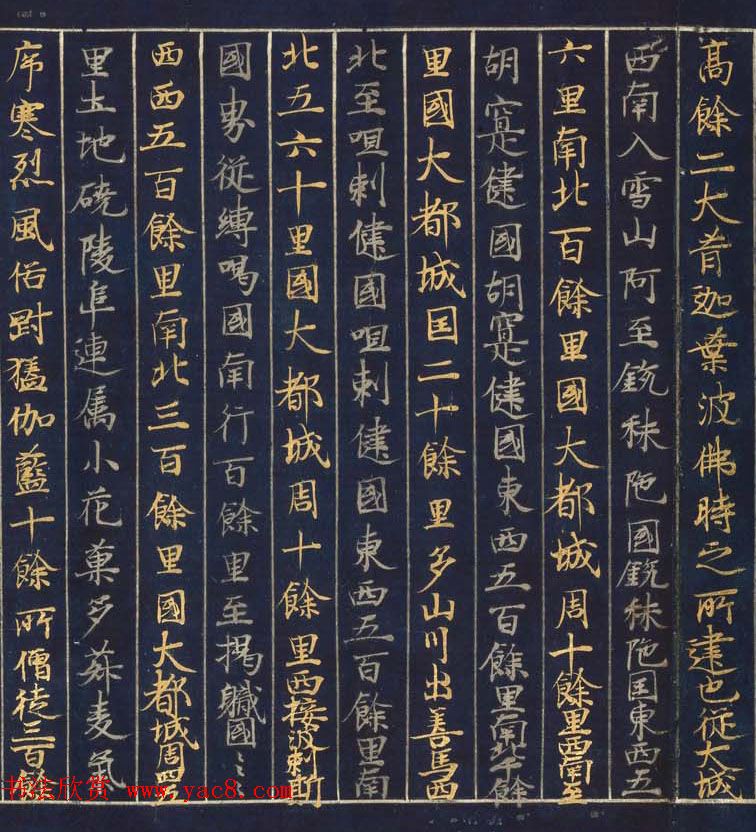 高餘二大昔迦葉波佛時之所建也從大城
西南入雪山阿至鋭秣陁國鋭秣陁国東西五
六里南北百餘里國大都城周十餘里西南至
胡寔健國胡寔健國東西五百餘里南北千餘
里國大都城囯二十餘里多山川出善馬西
北至呾剌健國呾剌健國東西五百餘里南
北五六十里國大都城周十餘里西接波剌斯
國界從縛喝國南行百餘里至揭職國〻〻
西西五百餘里南北三百餘里國大都城周四五
里土地磽陵阜連属小花菓多菽麦氣
序寒烈風俗對猛伽藍十餘所僧徒三百
书法欣赏 www.yac8.com